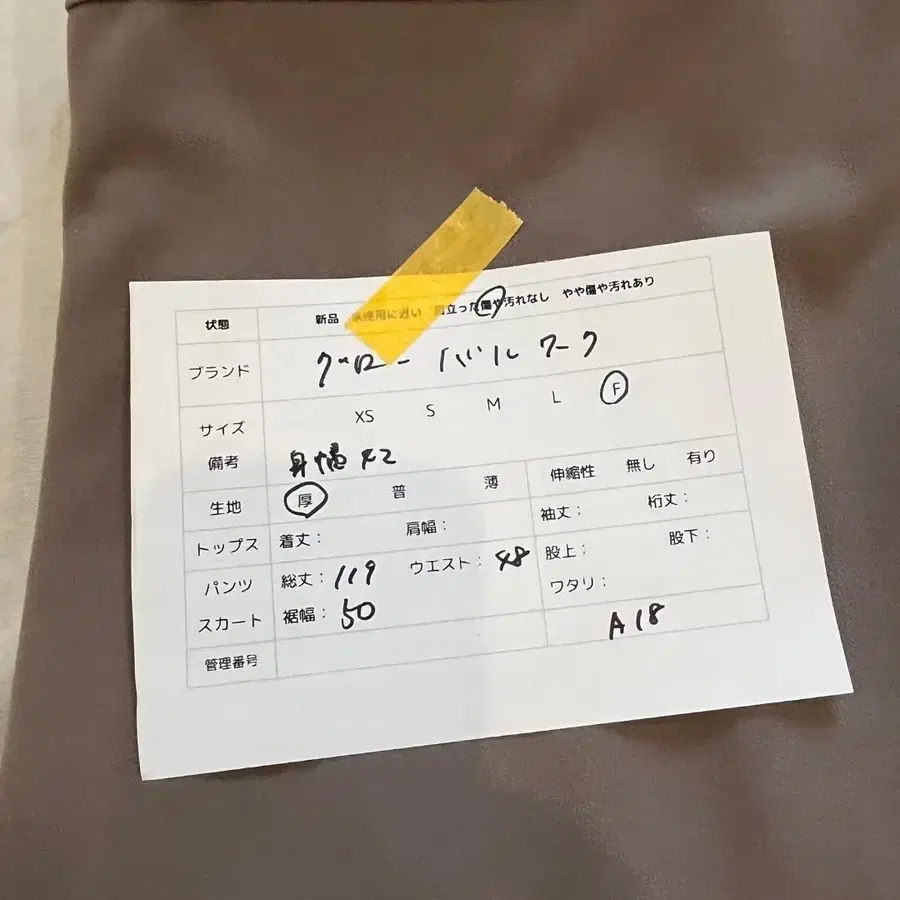 状態 新品 未使用に近い 目立った傷や汚れなし やや傷や汚れあり
ブランド グローバルワーク
サイズ XS S M L F
備考 身幅42
生地 厚 普 薄 伸縮性 無し 有り
トップス 着丈： 肩幅： 袖丈： 裄丈：
パンツ 総丈：119 ウエスト：48 股上： 股下：
スカート 裾幅：50 ワタリ：
管理番号 A18